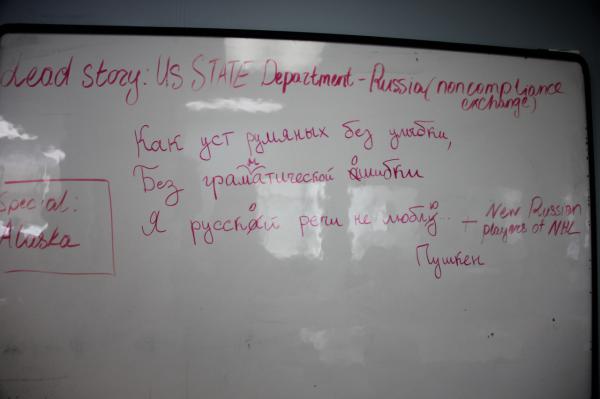 Lead story: US STATE Department - Russia (noncompliance
exchange)
Как уст румяных без улыбки,
Без грамматической ошибки
Special:
Alaska
Я русской речи не люблю.. — New Russian
players of NHL
Пушкен